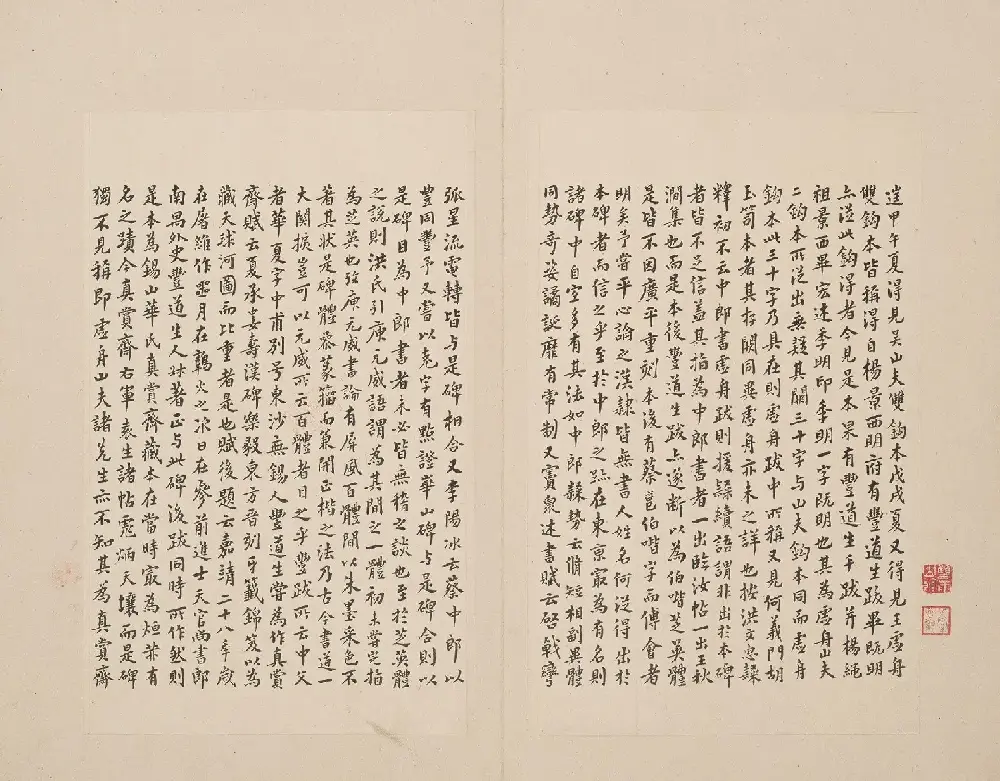 逮甲午夏得見吳山夫雙鉤本戊戌夏又得見王虛舟
雙鉤本皆稱得自楊景西明府有豐道生跋畢既明
亦從此鉤得者今見是本果有豐道生手跋并楊繩
祖景西畢宏述季明印季明一字既明也其為虛舟山夫
二鉤本所從出無疑其闕三十字與山夫鉤本同而虛舟
鉤本此三十字乃具在則虛舟跋中所稱又見何義門胡
玉筍本者其存闕同異虛舟亦未之詳也按洪文惠隸
釋初不云中郎書虛舟跋則援隸續語謂非出於本碑
者皆不足信蓋其指為中郎書者一出臨汝帖一出王秋
澗集也而是本後豐道生跋亦遂斷以為伯喈芝英體
是皆不因廣平重刻本後有蔡邕伯喈字而傅會者
明矣予嘗平心論之漢隸皆無書人姓名何從得出於
本碑者而信之乎至於中郎之跡在東京最為有名則
諸碑中自宜多有其法如中郎隸勢云脩短相副異體
同勢奇姿譎誕靡有常制又竇泉述書賦云啓戟彎
弧星流電轉皆與是碑相合又李陽冰云蔡中郎以
豐同豐予又嘗以堯字有點證華山碑與是碑合則以
是碑目為中郎書者未必皆無稽之談也至於芝英體
之說則洪氏引庾元威語謂為其間之一體初未嘗定指
為芝英也攷庾元威書論有屏風百體間以朱墨采色不
著其狀是碑體參篆籀而兼開正楷之法乃古今書道一
大關捩豈可以元威所云百體者目之乎豐跋所云中父
者華夏字中甫別号東沙無錫人豐道生嘗為作真賞
齋賦云夏承婁壽漢碑樂毅東方晉刻牙籤錦笈以為
藏天球河圖而比重者是也賦後題云嘉靖二十八年歲
在屠維作噩月在鶉火之次日在參前進士天官尚書郎
南禺外史豐道生人尗著正与此碑後跋同時所作然則
是本為錫山華氏真賞齋藏本在當時最為烜赫有
名之蹟今真賞齋右軍袁生諸帖虎炳天壤而是碑
獨不見稱即虛舟山夫諸先生亦不知其為真賞齋